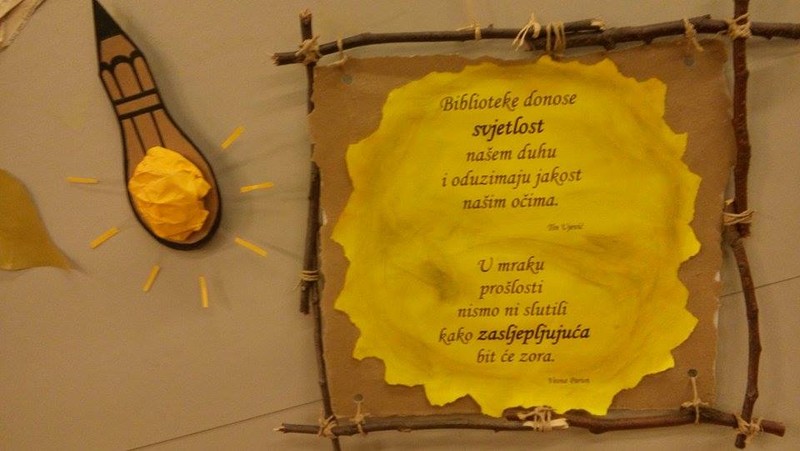 Biblioteke donose
svjetlost
našem duhu
i oduzimaju jakost
našim očima.
Tin Ujević
U mraku
prošlosti
nismo ni slutili
kako zasljepljujuća
bit će zora.
Vesna Parun